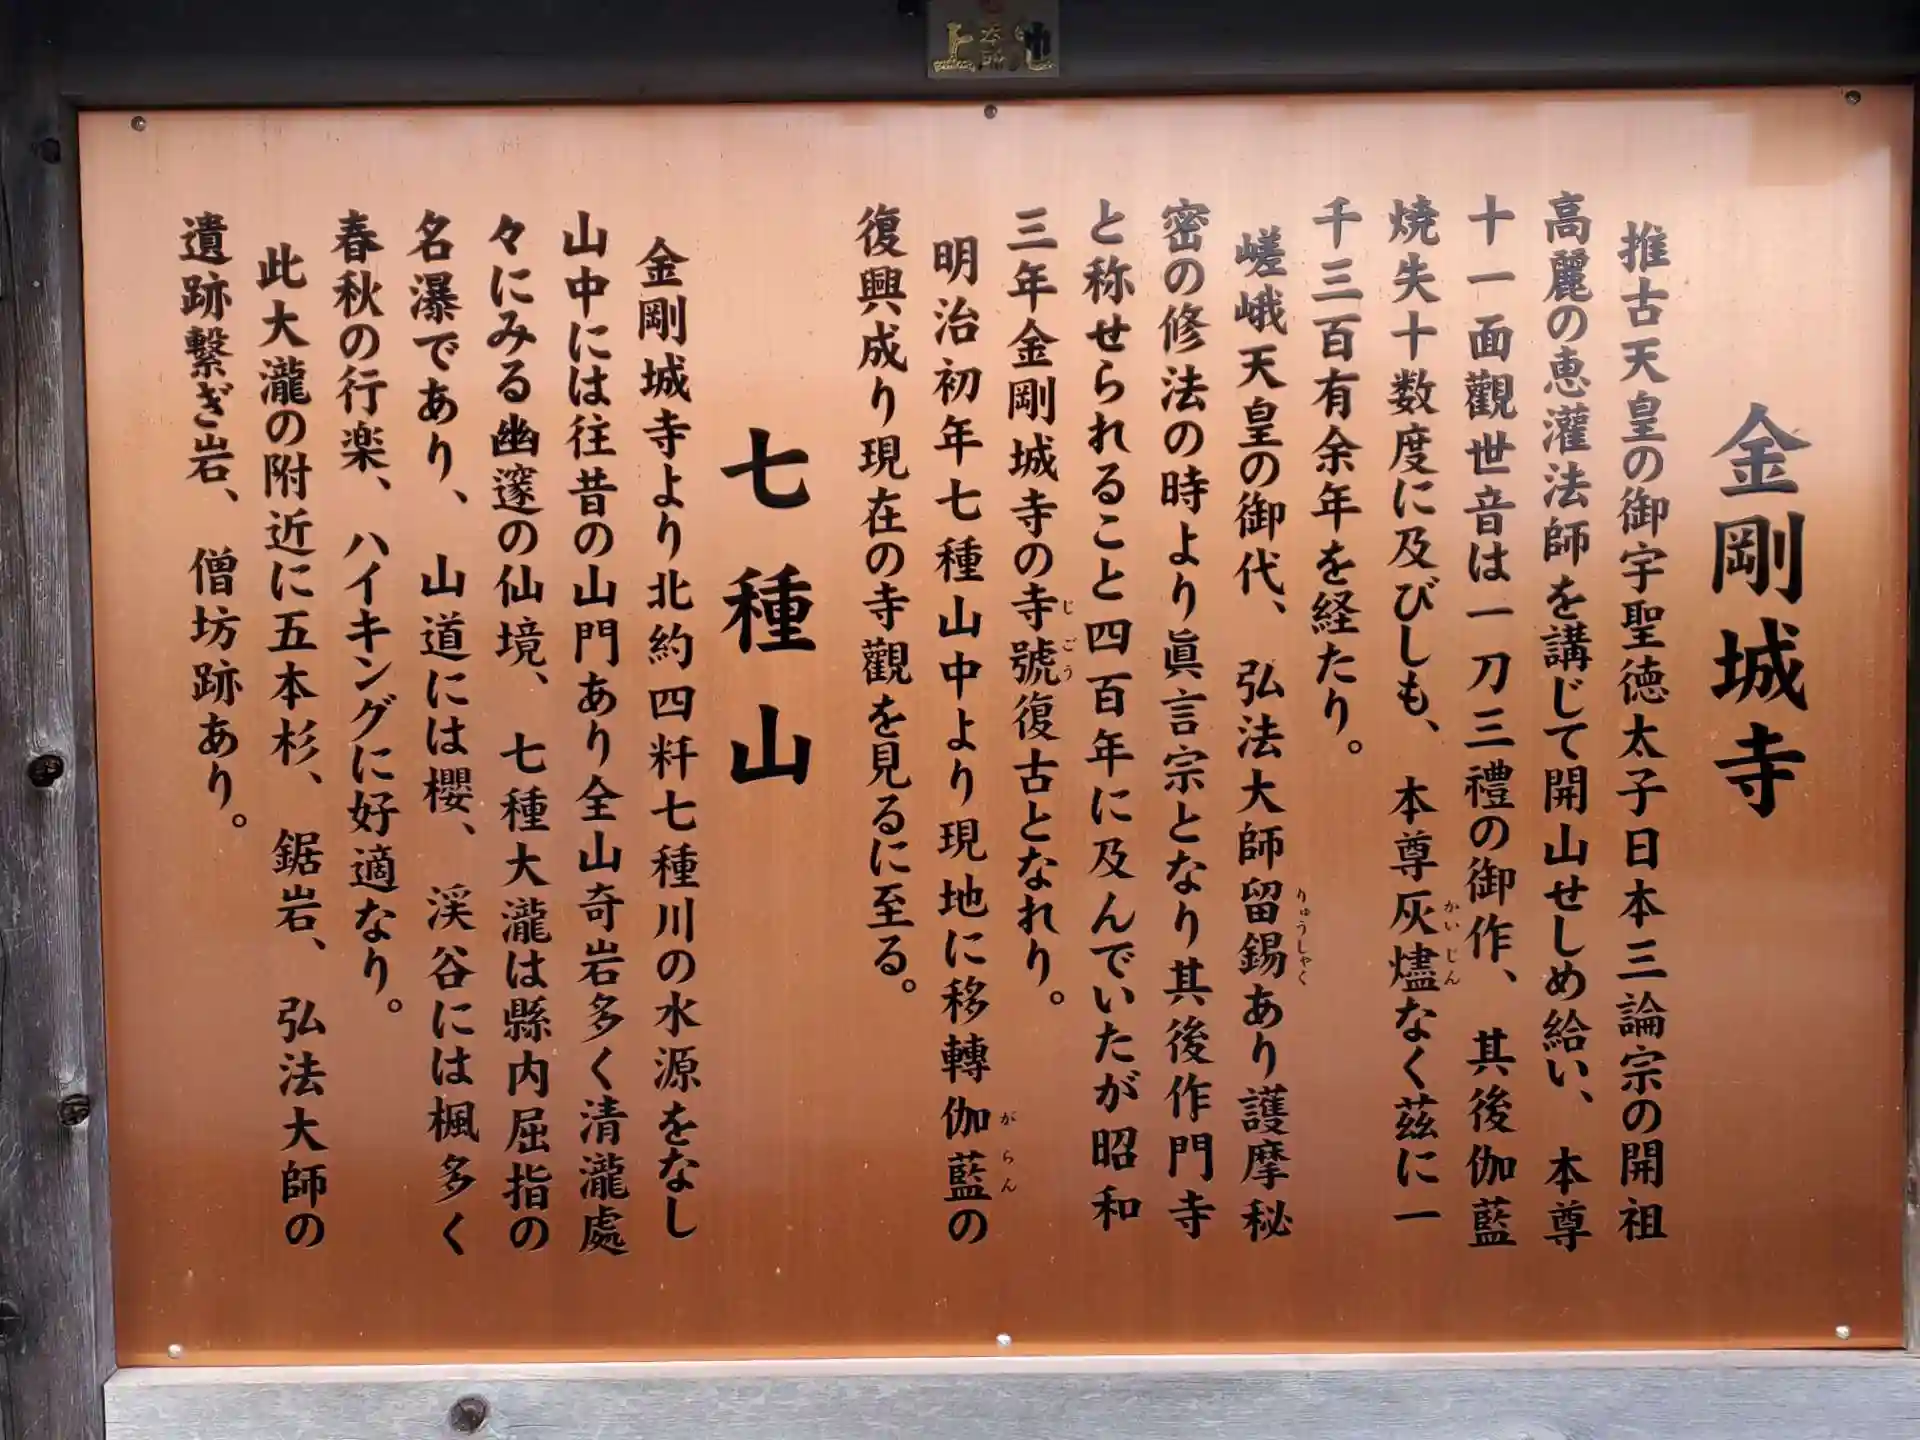 金剛城寺
推古天皇の御宇聖徳太子日本三論宗の開祖
高麗の恵灌法師を講じて開山せしめ給い、本尊
十一面觀世音は一刀三禮の御作、其後伽藍
焼失十数度に及びしも、本尊灰燼なく茲に一
かいじん
千三百有余年を経たり。
嵯峨天皇の御代、弘法大師留錫あり護摩秘
りゅうしゃく
密の修法の時より眞言宗となり其後作門寺
と称せられること四百年に及んでいたが昭和
三年金剛城寺の寺號復古となれり。
じごう
明治初年七種山中より現地に移轉伽藍の
がらん
復興成り現在の寺觀を見るに至る。
七種山
金剛城寺より北約四粁七種川の水源をなし
山中には往昔の山門あり全山奇岩多く清瀧處
々にみる幽邃の仙境、七種大瀧は縣内屈指の
名瀑であり、山道には櫻、渓谷には楓多く
春秋の行楽、ハイキングに好適なり。
此大瀧の附近に五本杉、鋸岩、弘法大師の
遺跡繋ぎ岩、僧坊跡あり。